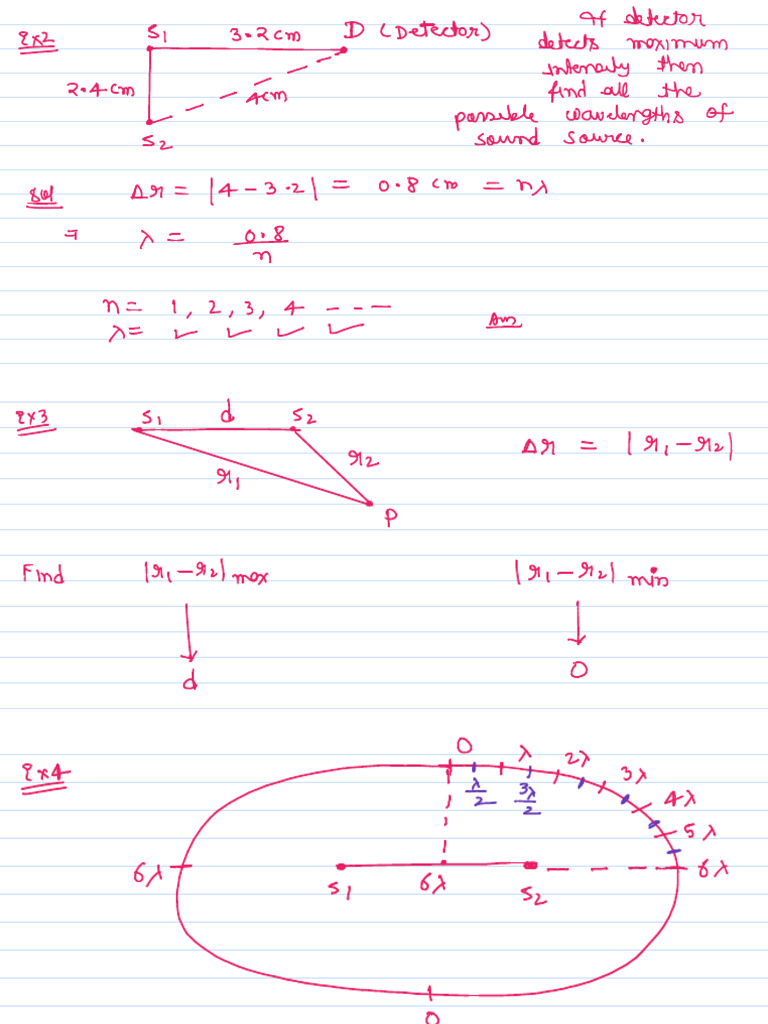 Ex2
S1 3.2cm D (Detector)
2.4cm
4cm
S2
If detector
detects maximum
intensity then
find all the
possible wavelengths of
sound source.
Sol Δr = |4 - 3.2| = 0.8 cm = nλ
⇒ λ = 0.8/n
n = 1, 2, 3, 4 - - -
λ = ✓ ✓ ✓ ✓ Ans
Ex3
S1 d S2
r1 r2
P
Δr = |r1 - r2|
Find |r1 - r2| max |r1 - r2| min
d 0
Ex4
0 λ 2λ 3λ 4λ 5λ 6λ
λ/2 3λ/2
6λ S1 6λ S2
0